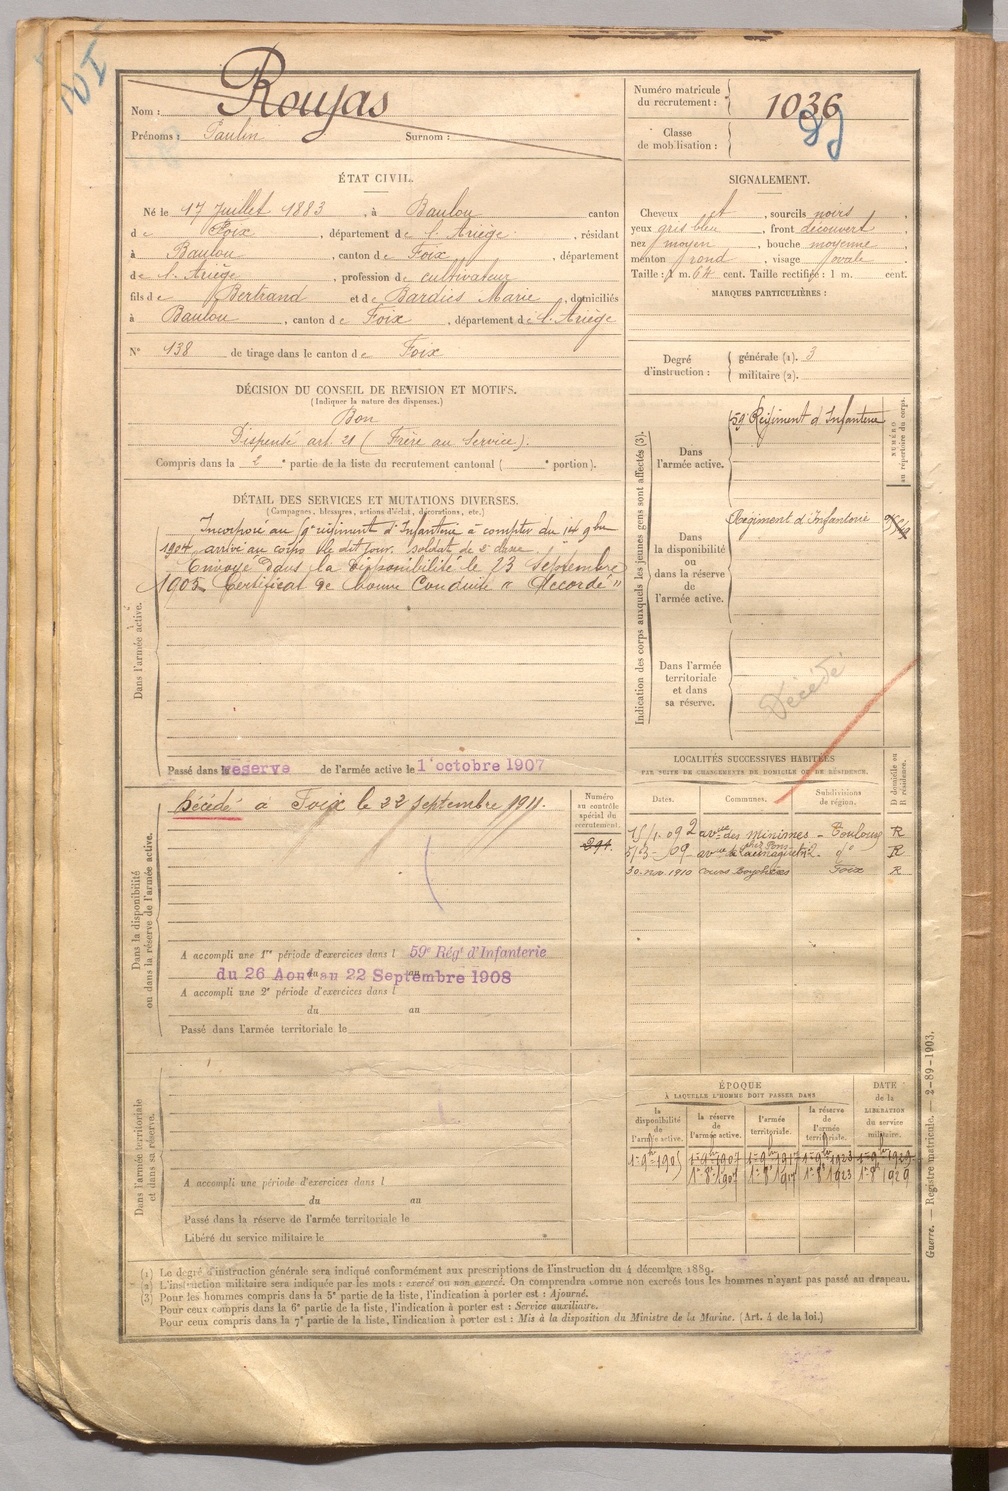 Nom : Roujas
Prénoms : Paulin Surnom :
Numéro matricule du recrutement : 1036
Classe de mobilisation :
ÉTAT CIVIL.
Né le 17 Juillet 1883, à Baulou canton
de Foix, département de l'Ariège, résidant
à Baulou, canton de Foix, département
de l'Ariège, profession de cultivateur
fils de Bertrand et de Bardies Marie, domiciliés
à Baulou, canton de Foix, département de l'Ariège
N° 138 de tirage dans le canton de Foix
SIGNALEMENT.
Cheveux et, sourcils noirs,
yeux gris bleu, front découvert,
nez moyen, bouche moyenne,
menton rond, visage ovale.
Taille : 1 m. 64 cent. Taille rectifiée : 1 m. cent.
MARQUES PARTICULIÈRES :
Degré d'instruction :
générale (1). 3
militaire (2).
DÉCISION DU CONSEIL DE REVISION ET MOTIFS.
(Indiquer la nature des dispenses.)
Bon
Dispensé art. 21 (Frère au Service).
Compris dans la 2e partie de la liste du recrutement cantonal ( e portion).
DÉTAIL DES SERVICES ET MUTATIONS DIVERSES.
(Campagnes, blessures, actions d'éclat, décorations, etc.)
Incorporé au 9e régiment d'Infanterie à compter du 14 9bre
1904 arrivé au corps le dit jour. soldat de 2e classe.
Envoyé dans la disponibilité le 23 Septembre
1905 Certificat de bonne Conduite "Accordé"
Dans l'armée active.
Passé dans la réserve de l'armée active le 1 octobre 1907
Indication des corps auxquels les jeunes gens sont affectés (3).
NUMÉRO au répertoire du corps.
Dans l'armée active.
59e Régiment d'Infanterie
Dans la disponibilité ou dans la réserve de l'armée active.
Régiment d'Infanterie
Dans l'armée territoriale et dans sa réserve.
Décédé
Dans la disponibilité ou dans la réserve de l'armée active.
Décédé à Foix le 22 Septembre 1911.
Numéro au contrôle spécial du recrutement.
A accompli une 1re période d'exercices dans l 59e Régt d'Infanterie
du 26 Aout au 22 Septembre 1908
A accompli une 2e période d'exercices dans l
du au
Passé dans l'armée territoriale le
LOCALITÉS SUCCESSIVES HABITÉES
PAR SUITE DE CHANGEMENTS DE DOMICILE OU DE RÉSIDENCE.
D domicile ou R résidence.
Dates. Communes. Subdivisions de région.
15/1.09 2 avue des minimes - Toulouse R
5/3-09 avue de do R
30. nov. 1910 Foix R
ÉPOQUE
À LAQUELLE L'HOMME DOIT PASSER DANS
DATE de la LIBÉRATION du service militaire.
la disponibilité de l'armée active.
la réserve de l'armée active.
l'armée territoriale.
la réserve de l'armée territoriale.
1er 9bre 1905 1er 9bre 1907 1er 9bre 1917 1er 9bre 1923 1er 9bre 1929
1er 8bre 1907 1er 8bre 1917 1er 8bre 1923 1er 8bre 1929
Dans l'armée territoriale et dans sa réserve.
A accompli une période d'exercices dans l
du au
Passé dans la réserve de l'armée territoriale le
Libéré du service militaire le
(1) Le degré d'instruction générale sera indiqué conformément aux prescriptions de l'instruction du 4 décembre 1889.
(2) L'instruction militaire sera indiquée par les mots : exercé ou non exercé. On comprendra comme non exercés tous les hommes n'ayant pas passé au drapeau.
(3) Pour les hommes compris dans la 5e partie de la liste, l'indication à porter est : Ajourné.
Pour ceux compris dans la 6e partie de la liste, l'indication à porter est : Service auxiliaire.
Pour ceux compris dans la 7e partie de la liste, l'indication à porter est : Mis à la disposition du Ministre de la Marine. (Art. 4 de la loi.)
Guerre. — Registre matricule. — 2-89-1903.